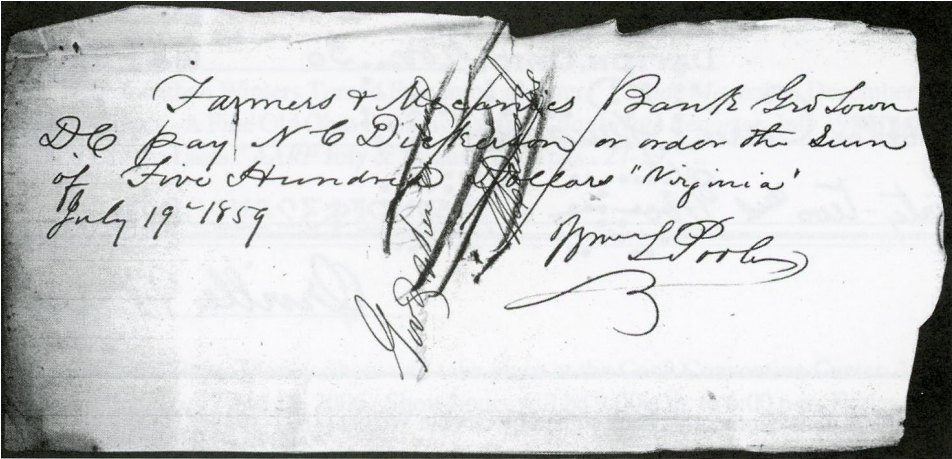 Farmers & Mecanics Bank GeoTown
DC pay N C Dickerson or order the Sum
of Five Hundred Dollars "Virginia"
July 19 1859
Wm L Poole
Good